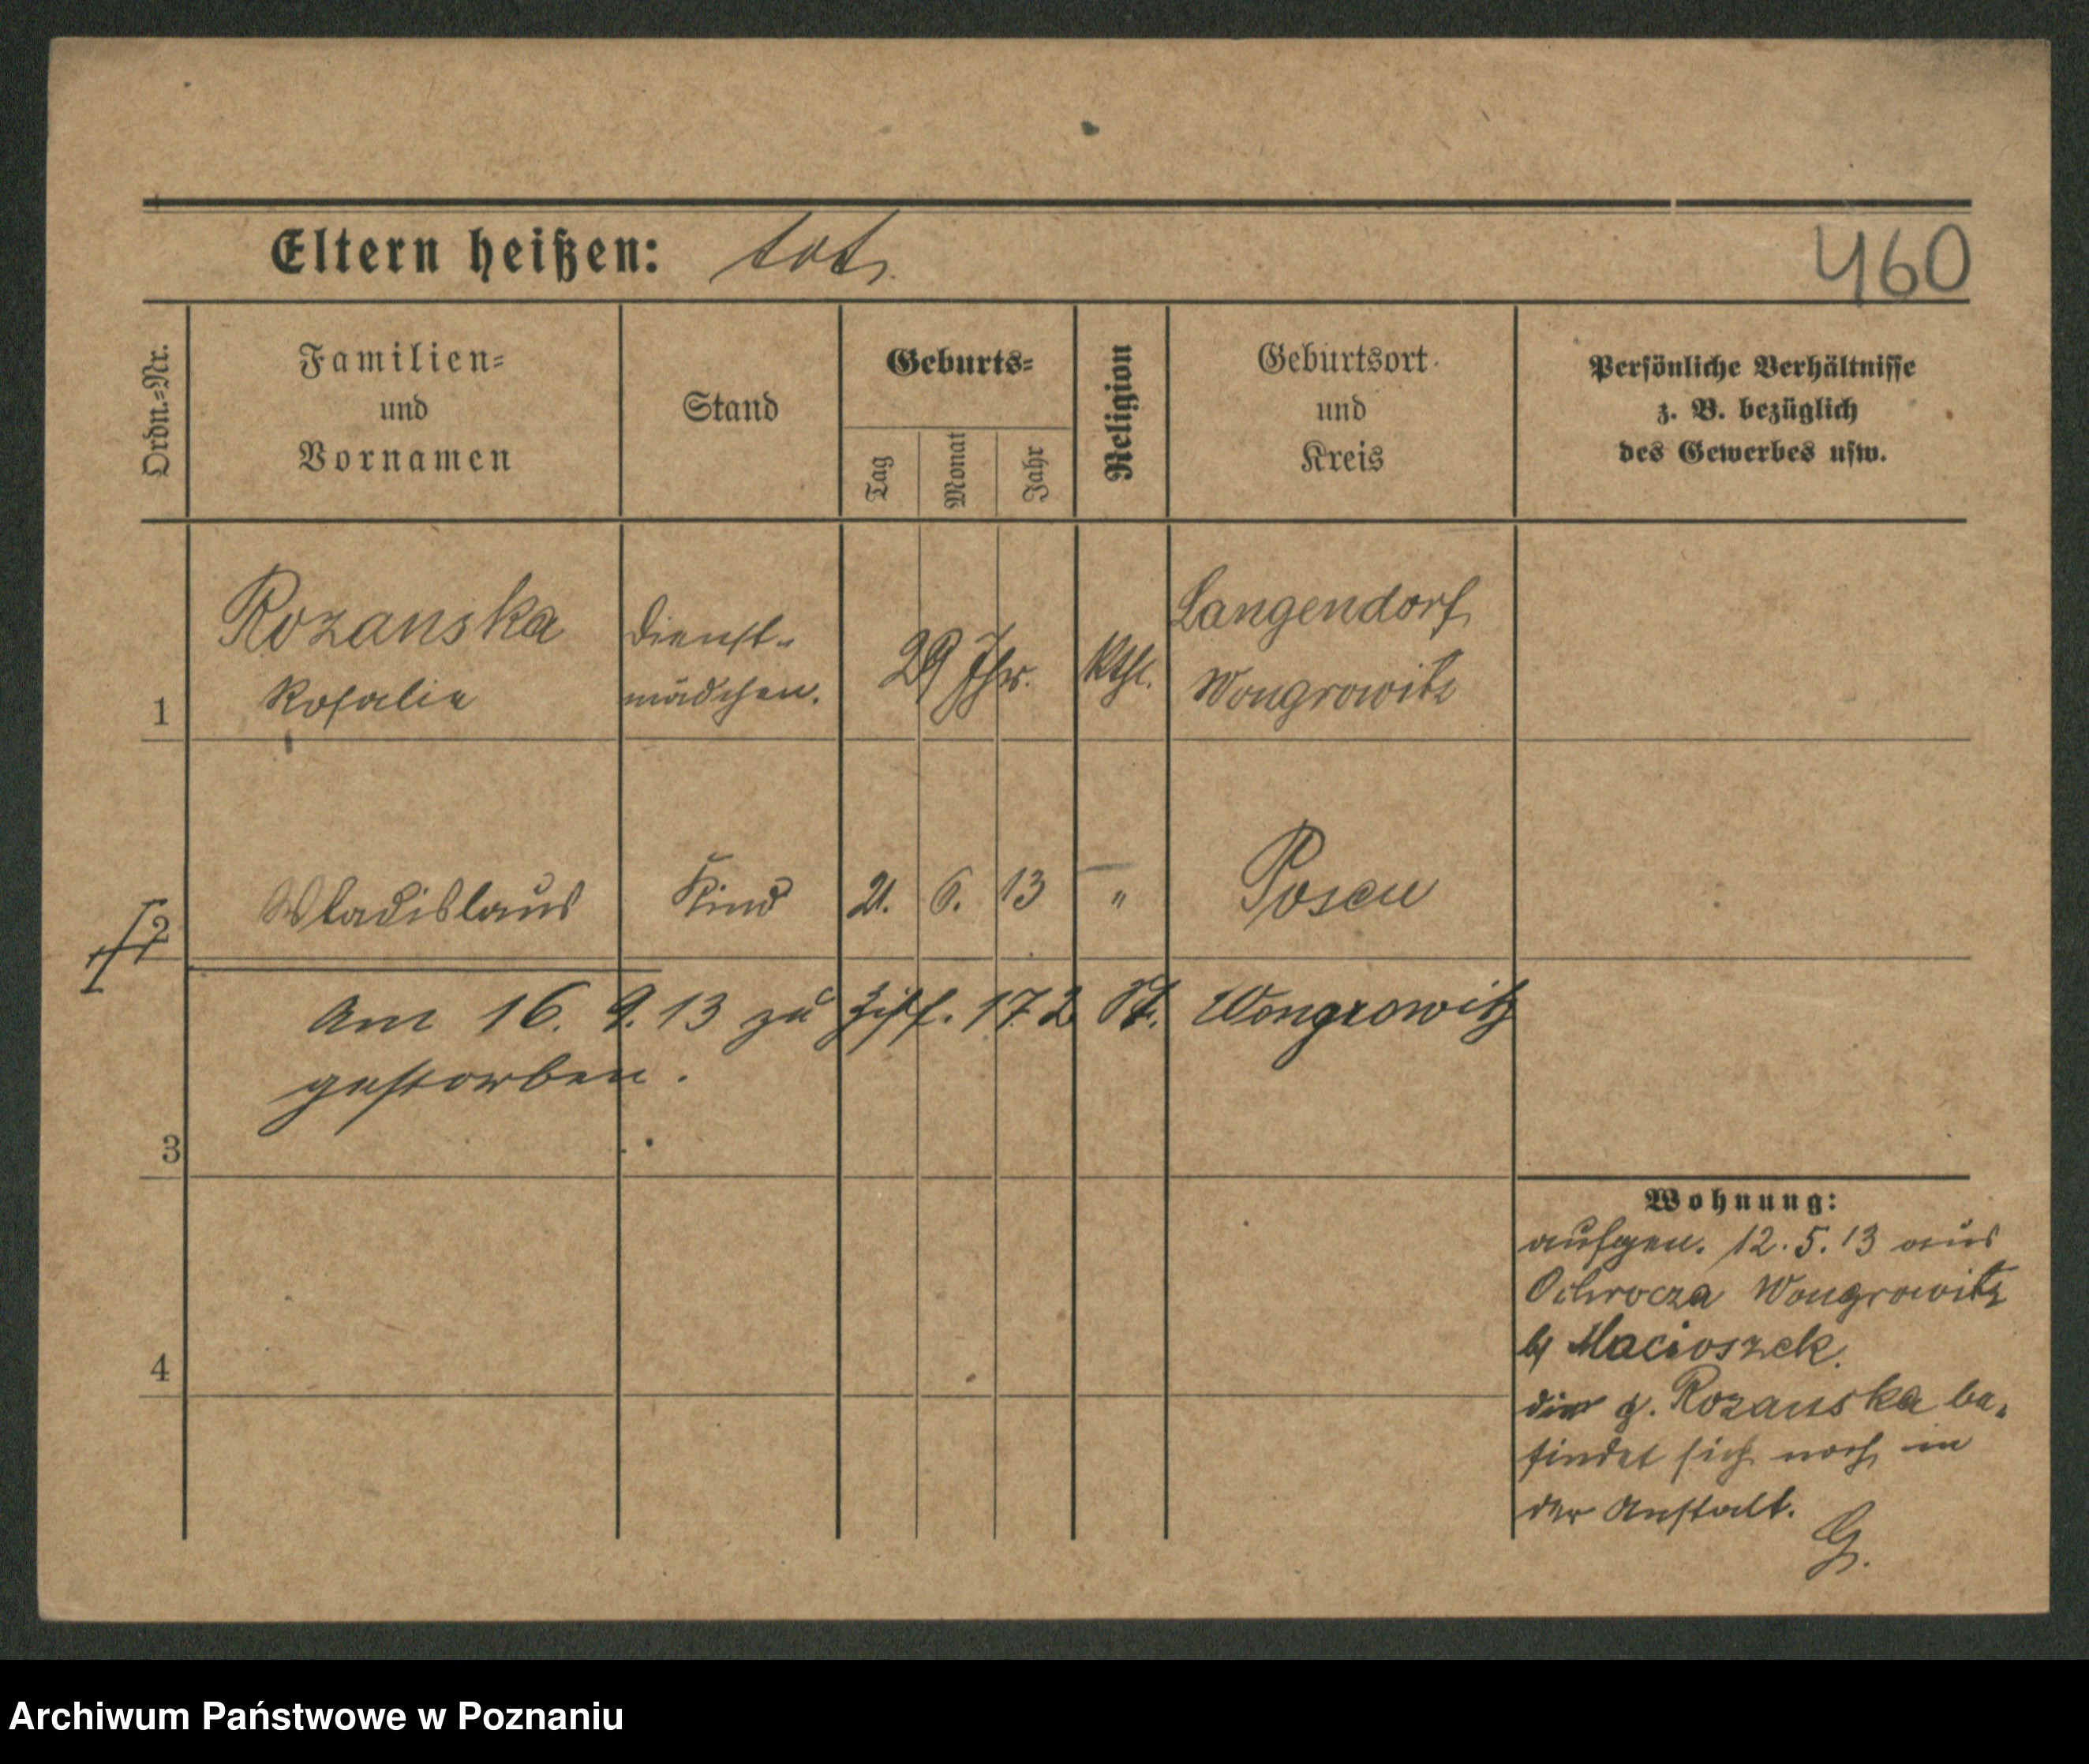 Eltern heißen: tot.
460
Ordn.-Nr.
Familien-
und
Vornamen
Stand
Geburts-
Tag
Monat
Jahr
Religion
Geburtsort
und
Kreis
Persönliche Verhältnisse
z. B. bezüglich
des Gewerbes usw.
1
Rozanska
Rosalie
Dienst-
mädchen.
29 Jhr.
kthl.
Langendorf
Wongrowitz
2
Wladislaus
Kind
21. 6. 13
"
Posen
Am 16. 9. 13 zu Ziff. 172 Wongrowitz
gestorben.
3
4
Wohnung:
aufgen. 12. 5. 13 aus
Wongrowitz
b/ Macioszek.
die g. Rozanska be-
findet sich noch in
der Anstalt.
G.
Archiwum Państwowe w Poznaniu